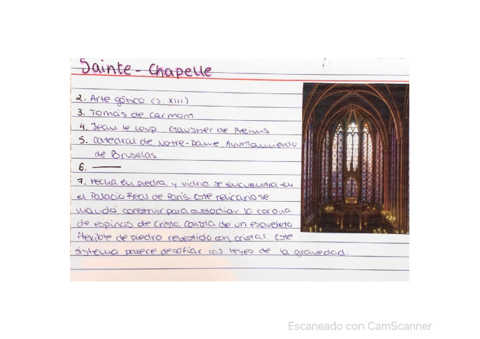 Sainte-Chapelle
2. Arte gótico (s. XIII)
3. Tomás de Carmom
4. Jean le Loup, Gaucher de Reims
5. Catedral de Notre-Dame, Ayuntamiento
de Bruselas
6. ———
7. Hecha en piedra y vidrio se encuentra en
el Palacio Real de París. Este relicario se
mandó construir para custodiar la corona
de espinas de Cristo. Consta de un esqueleto
flexible de piedra revestido con cristal. Este
sistema parece desafiar las leyes de la gravedad.
Escaneado con CamScanner